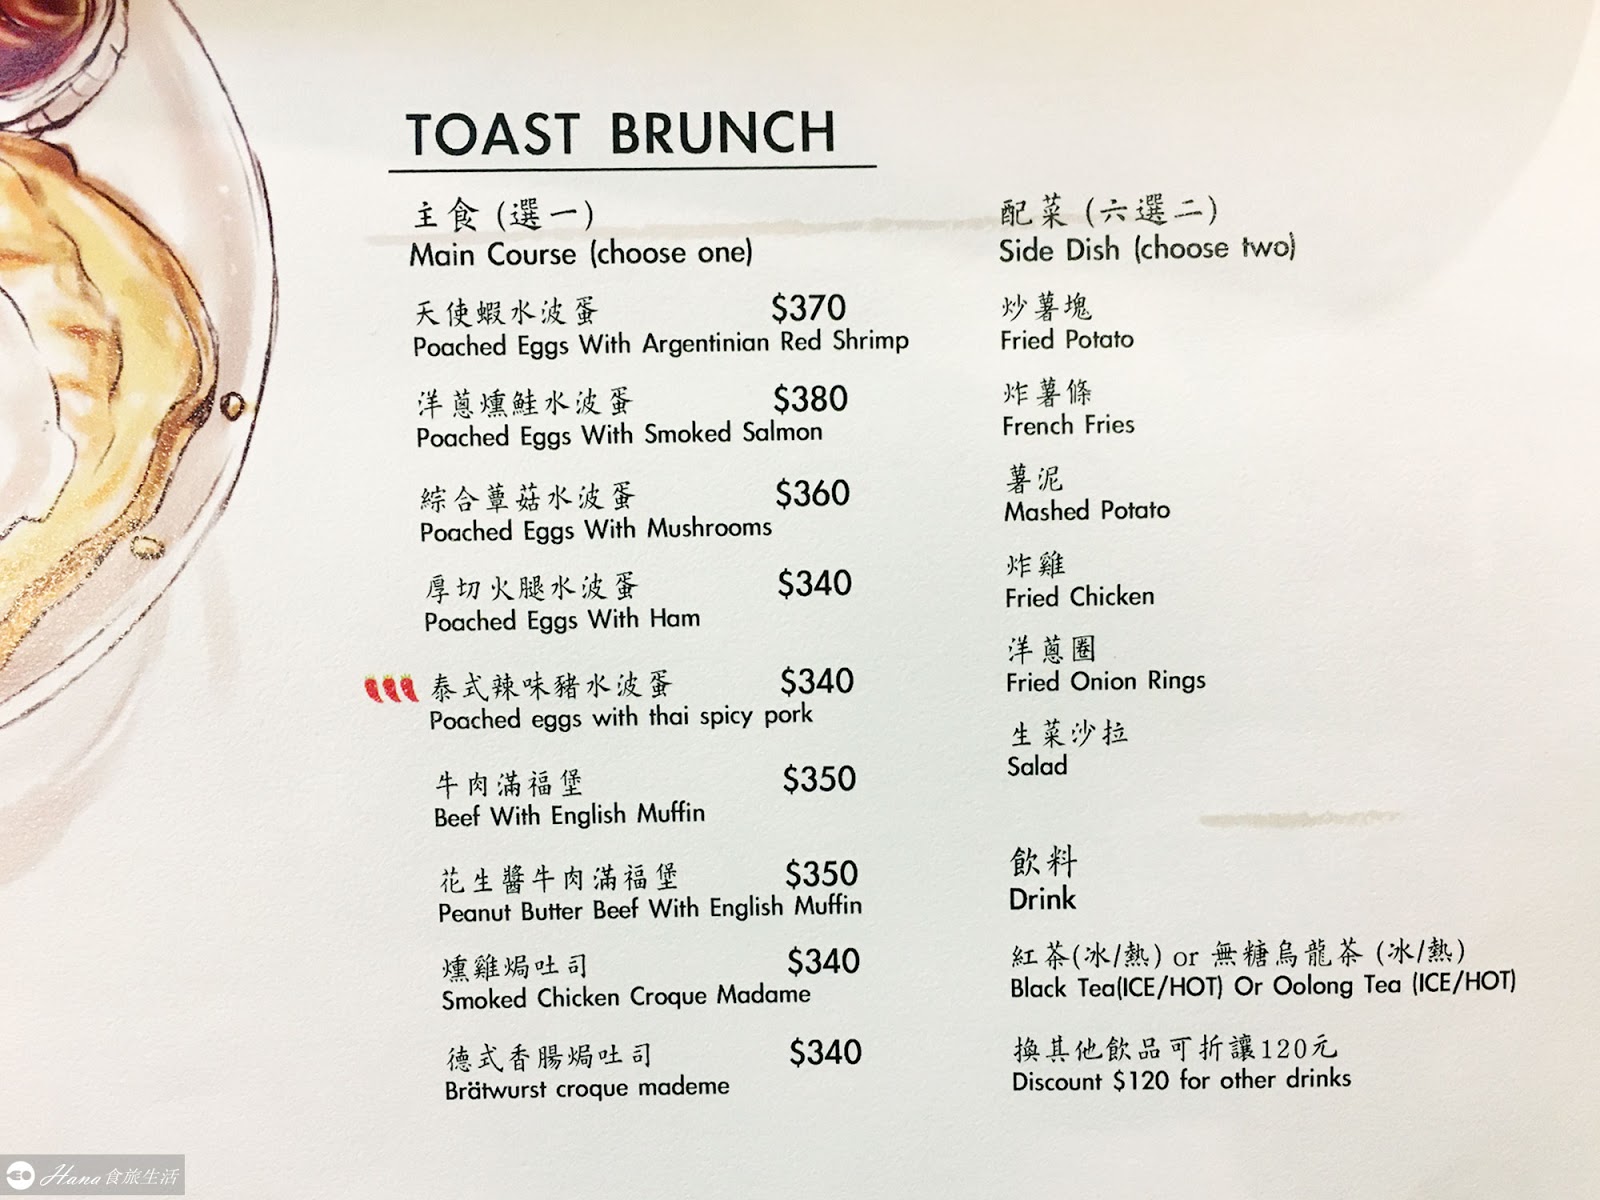 TOAST BRUNCH
主食 (選一)
Main Course (choose one)
天使蝦水波蛋 $370
Poached Eggs With Argentinian Red Shrimp
洋蔥燻鮭水波蛋 $380
Poached Eggs With Smoked Salmon
綜合蕈菇水波蛋 $360
Poached Eggs With Mushrooms
厚切火腿水波蛋 $340
Poached Eggs With Ham
泰式辣味豬水波蛋 $340
Poached eggs with thai spicy pork
牛肉滿福堡 $350
Beef With English Muffin
花生醬牛肉滿福堡 $350
Peanut Butter Beef With English Muffin
燻雞焗吐司 $340
Smoked Chicken Croque Madame
德式香腸焗吐司 $340
Brätwurst croque mademe
配菜 (六選二)
Side Dish (choose two)
炒薯塊
Fried Potato
炸薯條
French Fries
薯泥
Mashed Potato
炸雞
Fried Chicken
洋蔥圈
Fried Onion Rings
生菜沙拉
Salad
飲料
Drink
紅茶(冰/熱) or 無糖烏龍茶 (冰/熱)
Black Tea(ICE/HOT) Or Oolong Tea (ICE/HOT)
換其他飲品可折讓120元
Discount $120 for other drinks
Hana食旅生活